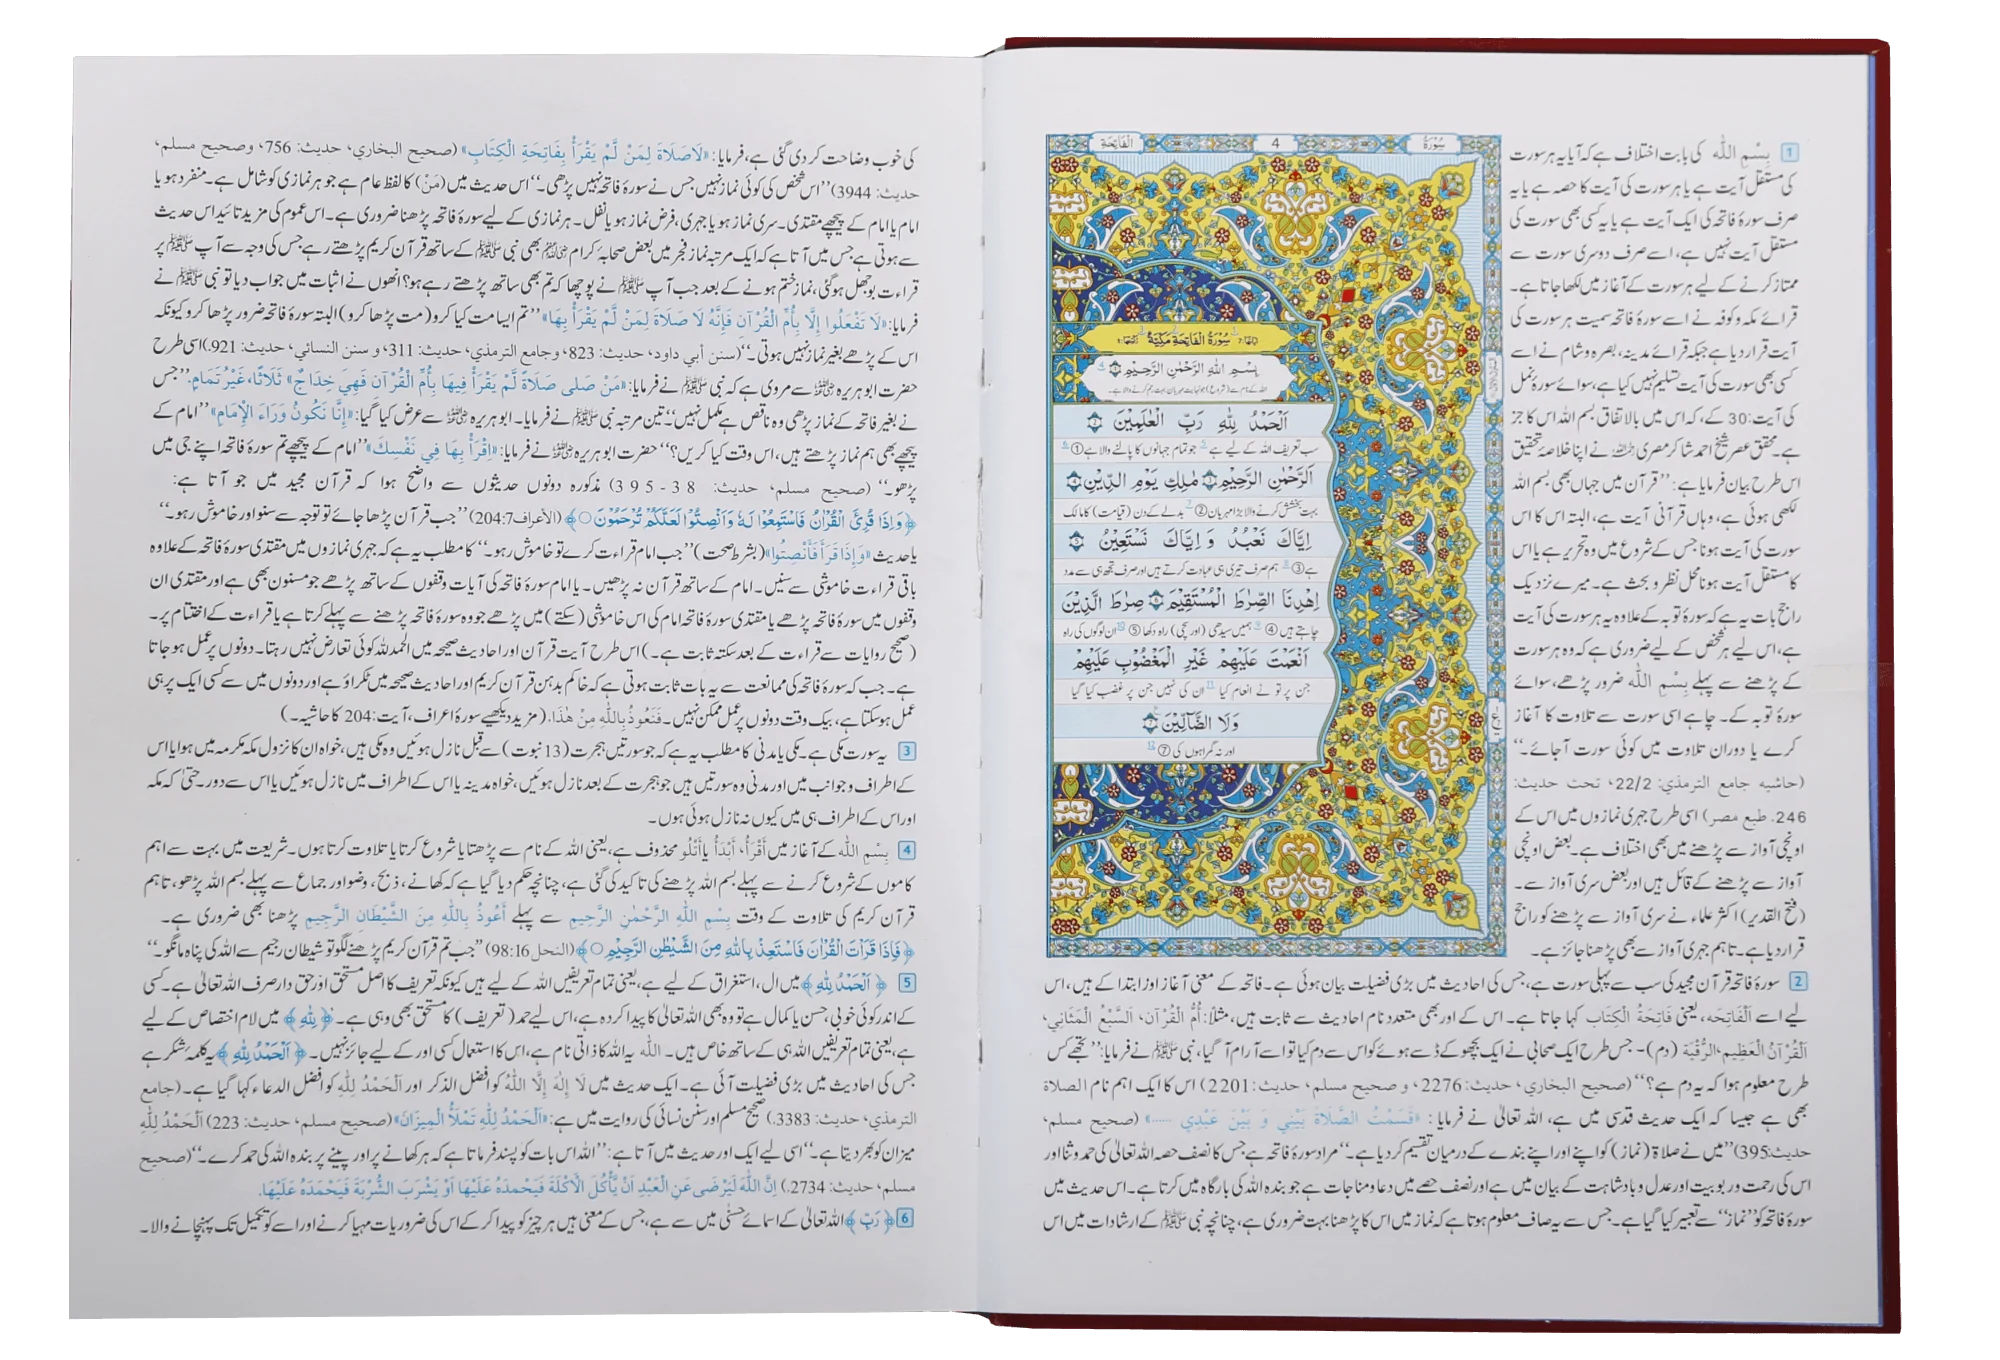 سُوْرَةُ
4
اَلْفَاتِحَة
سُوْرَةُ الْفَاتِحَةِ مَكِّيَّةٌ
بِسْمِ اللّٰهِ الرَّحْمٰنِ الرَّحِيْمِ
اللہ کے نام سے (شروع) جو نہایت مہربان بہت رحم کرنے والا ہے۔
اَلْحَمْدُ لِلّٰهِ رَبِّ الْعٰلَمِيْنَ
سب تعریف اللہ کے لیے ہے جو تمام جہانوں کا پالنے والا ہے ①
اَلرَّحْمٰنِ الرَّحِيْمِ مٰلِكِ يَوْمِ الدِّيْنِ
بہت بخشش کرنے والا بڑا مہربان ② بدلے کے دن (قیامت) کا مالک
اِيَّاكَ نَعْبُدُ وَ اِيَّاكَ نَسْتَعِيْنُ
ہے ③ ہم صرف تیری ہی عبادت کرتے ہیں اور صرف تجھ ہی سے مدد
اِهْدِنَا الصِّرَاطَ الْمُسْتَقِيْمَ صِرَاطَ الَّذِيْنَ
چاہتے ہیں ④ ہمیں سیدھی (اور سچی) راہ دکھا ⑤ ان لوگوں کی راہ
اَنْعَمْتَ عَلَيْهِمْ غَيْرِ الْمَغْضُوْبِ عَلَيْهِمْ
جن پر تو نے انعام کیا ان کی نہیں جن پر غضب کیا گیا
وَلَا الضَّآلِّيْنَ
اور نہ گمراہوں کی ⑦
1 بِسْمِ اللّٰه کی بابت اختلاف ہے کہ آیا یہ ہر سورت
کی مستقل آیت ہے یا ہر سورت کی آیت کا حصہ ہے یا یہ
صرف سورۂ فاتحہ کی ایک آیت ہے یا یہ کسی بھی سورت کی
مستقل آیت نہیں ہے، اسے صرف دوسری سورت سے
ممتاز کرنے کے لیے ہر سورت کے آغاز میں لکھا جاتا ہے۔
قرائے مکہ و کوفہ نے اسے سورۂ فاتحہ سمیت ہر سورت کی
آیت قرار دیا ہے جبکہ قرائے مدینہ، بصرہ و شام نے اسے
کسی بھی سورت کی آیت تسلیم نہیں کیا ہے، سوائے سورۂ نمل
کی آیت:30 کے، کہ اس میں بالاتفاق بسم اللہ اس کا جز
ہے۔ محقق عصر شیخ احمد شاکر مصری رحمہ اللہ نے اپنا خلاصۂ تحقیق
اس طرح بیان فرمایا ہے: ”قرآن میں جہاں بھی بسم اللہ
لکھی ہوئی ہے، وہاں قرآنی آیت ہے، البتہ اس کا اس
سورت کی آیت ہونا جس کے شروع میں وہ تحریر ہے یا اس
کا مستقل آیت ہونا محل نظر و بحث ہے۔ میرے نزدیک
راجح بات یہ ہے کہ سورۂ توبہ کے علاوہ یہ ہر سورت کی آیت
ہے، اس لیے ہر شخص کے لیے ضروری ہے کہ وہ ہر سورت
کے پڑھنے سے پہلے بِسْمِ اللّٰه ضرور پڑھے، سوائے
سورۂ توبہ کے۔ چاہے اسی سورت سے تلاوت کا آغاز
کرے یا دوران تلاوت میں کوئی سورت آجائے۔“
(حاشیہ جامع الترمذي: 22/2، تحت حدیث:
246۔ طبع مصر) اسی طرح جہری نمازوں میں اس کے
اونچی آواز سے پڑھنے میں بھی اختلاف ہے۔ بعض اونچی
آواز سے پڑھنے کے قائل ہیں اور بعض سری آواز سے۔
(فتح القدیر) اکثر علماء نے سری آواز سے پڑھنے کو راجح
قرار دیا ہے۔ تاہم جہری آواز سے بھی پڑھنا جائز ہے۔
2 سورۂ فاتحہ قرآن مجید کی سب سے پہلی سورت ہے، جس کی احادیث میں بڑی فضیلت بیان ہوئی ہے۔ فاتحہ کے معنی آغاز اور ابتدا کے ہیں، اس
لیے اسے اَلْفَاتِحَه، یعنی فَاتِحَةُ الْكِتَاب کہا جاتا ہے۔ اس کے اور بھی متعدد نام احادیث سے ثابت ہیں، مثلاً: اُمُّ الْقُرْآن، اَلسَّبْعُ الْمَثَانِي،
اَلْقُرْآنُ الْعَظِيم، الرُّقْيَة (دم)۔ جس طرح ایک صحابی نے ایک بچھو کے ڈسے ہوئے کو اس سے دم کیا تو اسے آرام آ گیا، نبی ﷺ نے فرمایا: ”تجھے کس
طرح معلوم ہوا کہ یہ دم ہے؟“ (صحیح البخاري، حدیث: 2276، و صحیح مسلم، حدیث: 2201) اس کا ایک اہم نام الصلاة
بھی ہے جیسا کہ ایک حدیث قدسی میں ہے، اللہ تعالیٰ نے فرمایا: «قَسَمْتُ الصَّلَاةَ بَيْنِي وَ بَيْنَ عَبْدِي .....» (صحیح مسلم،
حدیث:395) ”میں نے صلاۃ (نماز) کو اپنے اور اپنے بندے کے درمیان تقسیم کر دیا ہے۔“ مراد سورۂ فاتحہ ہے جس کا نصف حصہ اللہ تعالیٰ کی حمد و ثنا اور
اس کی رحمت و ربوبیت اور عدل و بادشاہت کے بیان میں ہے اور نصف حصے میں دعا و مناجات ہے جو بندہ اللہ کی بارگاہ میں کرتا ہے۔ اس حدیث میں
سورۂ فاتحہ کو ”نماز“ سے تعبیر کیا گیا ہے۔ جس سے یہ صاف معلوم ہوتا ہے کہ نماز میں اس کا پڑھنا بہت ضروری ہے، چنانچہ نبی ﷺ کے ارشادات میں اس
کی خوب وضاحت کر دی گئی ہے، فرمایا: «لَاصَلَاةَ لِمَنْ لَّمْ يَقْرَأْ بِفَاتِحَةِ الْكِتَابِ» (صحیح البخاري، حدیث: 756، وصحیح مسلم،
حدیث: 3944) ”اس شخص کی کوئی نماز نہیں جس نے سورۂ فاتحہ نہیں پڑھی۔“ اس حدیث میں (مَنْ) کا لفظ عام ہے جو ہر نمازی کو شامل ہے۔ منفرد ہو یا
امام یا امام کے پیچھے مقتدی۔ سری نماز ہو یا جہری، فرض نماز ہو یا نفل۔ ہر نمازی کے لیے سورۂ فاتحہ پڑھنا ضروری ہے۔ اس عموم کی مزید تائید اس حدیث
سے ہوتی ہے جس میں آتا ہے کہ ایک مرتبہ نماز فجر میں بعض صحابۂ کرام بھی نبی ﷺ کے ساتھ قرآن کریم پڑھتے رہے جس کی وجہ سے آپ ﷺ پر
قراءت بوجھل ہو گئی، نماز ختم ہونے کے بعد جب آپ ﷺ نے پوچھا کہ تم بھی ساتھ پڑھتے رہے ہو؟ انھوں نے اثبات میں جواب دیا تو نبی ﷺ نے
فرمایا: «لَا تَفْعَلُوا إِلَّا بِأُمِّ الْقُرْآنِ فَإِنَّهُ لَا صَلَاةَ لِمَنْ لَّمْ يَقْرَأْ بِهَا» ”تم ایسا مت کیا کرو (مت پڑھا کرو) البتہ سورۂ فاتحہ ضرور پڑھا کرو کیونکہ
اس کے پڑھے بغیر نماز نہیں ہوتی۔“ (سنن أبي داود، حدیث: 823، وجامع الترمذي، حدیث: 311، و سنن النسائي، حدیث: 921.) اسی طرح
حضرت ابو ہریرہ سے مروی ہے کہ نبی ﷺ نے فرمایا: «مَنْ صَلى صَلَاةً لَّمْ يَقْرَأْ فِيهَا بِأُمِّ الْقُرْآنِ فَهِيَ خِدَاجٌ» ثَلَاثًا، غَيْرُ تَمَامٍ ”جس
نے بغیر فاتحہ کے نماز پڑھی وہ ناقص ہے مکمل نہیں۔“ تین مرتبہ نبی ﷺ نے فرمایا۔ ابو ہریرہ سے عرض کیا گیا: «إِنَّا نَكُونُ وَرَاءَ الْإِمَامِ» ”امام کے
پیچھے بھی ہم نماز پڑھتے ہیں، اس وقت کیا کریں؟“ حضرت ابو ہریرہ نے فرمایا: «اقْرَأْ بِهَا فِي نَفْسِكَ» ”امام کے پیچھے تم سورۂ فاتحہ اپنے جی میں
پڑھو۔“ (صحیح مسلم، حدیث: 38-395) مذکورہ دونوں حدیثوں سے واضح ہوا کہ قرآن مجید میں جو آتا ہے:
﴿وَاِذَا قُرِئَ الْقُرْاٰنُ فَاسْتَمِعُوْا لَهٗ وَاَنْصِتُوْا لَعَلَّكُمْ تُرْحَمُوْنَ﴾ (الأعراف204:7) ”جب قرآن پڑھا جائے تو توجہ سے سنو اور خاموش رہو۔“
یا حدیث «وَإِذَا قَرَأَ فَأَنْصِتُوا» (بشرط صحت) ”جب امام قراءت کرے تو خاموش رہو۔“ کا مطلب یہ ہے کہ جہری نمازوں میں مقتدی سورۂ فاتحہ کے علاوہ
باقی قراءت خاموشی سے سنیں۔ امام کے ساتھ قرآن نہ پڑھیں۔ یا امام سورۂ فاتحہ کی آیات وقفوں کے ساتھ پڑھے جو مسنون بھی ہے اور مقتدی ان
وقفوں میں سورۂ فاتحہ پڑھے یا مقتدی سورۂ فاتحہ امام کی اس خاموشی (سکتے) میں پڑھے جو وہ سورۂ فاتحہ پڑھنے سے پہلے کرتا ہے یا قراءت کے اختتام پر۔
(صحیح روایات سے قراءت کے بعد سکتہ ثابت ہے۔) اس طرح آیت قرآن اور احادیث صحیحہ میں الحمدللہ کوئی تعارض نہیں رہتا۔ دونوں پر عمل ہو جاتا
ہے۔ جب کہ سورۂ فاتحہ کی ممانعت سے یہ بات ثابت ہوتی ہے کہ خاکم بدہن قرآن کریم اور احادیث صحیحہ میں ٹکراؤ ہے اور دونوں میں سے کسی ایک پر ہی
عمل ہو سکتا ہے، بیک وقت دونوں پر عمل ممکن نہیں۔ فَنَعُوذُ بِاللّٰهِ مِنْ هٰذَا. (مزید دیکھیے سورۂ اعراف، آیت:204 کا حاشیہ۔)
3 یہ سورت مکی ہے۔ مکی یا مدنی کا مطلب یہ ہے کہ جو سورتیں ہجرت (13 نبوت) سے قبل نازل ہوئیں وہ مکی ہیں، خواہ ان کا نزول مکہ مکرمہ میں ہوا یا اس
کے اطراف و جوانب میں اور مدنی وہ سورتیں ہیں جو ہجرت کے بعد نازل ہوئیں، خواہ مدینہ یا اس کے اطراف میں نازل ہوئیں یا اس سے دور۔ حتیٰ کہ مکہ
اور اس کے اطراف ہی میں کیوں نہ نازل ہوئی ہوں۔
4 بِسْمِ اللّٰه کے آغاز میں أَقْرَأُ، أَبْدَأُ یا أَتْلُو محذوف ہے، یعنی اللہ کے نام سے پڑھتا یا شروع کرتا یا تلاوت کرتا ہوں۔ شریعت میں بہت سے اہم
کاموں کے شروع کرنے سے پہلے بسم اللہ پڑھنے کی تاکید کی گئی ہے، چنانچہ حکم دیا گیا ہے کہ کھانے، ذبح، وضو اور جماع سے پہلے بسم اللہ پڑھو، تاہم
قرآن کریم کی تلاوت کے وقت بِسْمِ اللّٰهِ الرَّحْمٰنِ الرَّحِيمِ سے پہلے أَعُوذُ بِاللّٰهِ مِنَ الشَّيْطَانِ الرَّجِيمِ پڑھنا بھی ضروری ہے۔
﴿فَاِذَا قَرَاْتَ الْقُرْاٰنَ فَاسْتَعِذْ بِاللّٰهِ مِنَ الشَّيْطٰنِ الرَّجِيْمِ﴾ (النحل 98:16) ”جب تم قرآن کریم پڑھنے لگو تو شیطان رجیم سے اللہ کی پناہ مانگو۔“
5 ﴿اَلْحَمْدُ لِلّٰهِ﴾ میں ال، استغراق کے لیے ہے، یعنی تمام تعریفیں اللہ کے لیے ہیں کیونکہ تعریف کا اصل مستحق اور حق دار صرف اللہ تعالیٰ ہے۔ کسی
کے اندر کوئی خوبی، حسن یا کمال ہے تو وہ بھی اللہ تعالیٰ کا پیدا کردہ ہے، اس لیے حمد (تعریف) کا مستحق بھی وہی ہے۔ ﴿لِلّٰهِ﴾ میں لام اختصاص کے لیے
ہے، یعنی تمام تعریفیں اللہ ہی کے ساتھ خاص ہیں۔ اللّٰه یہ اللہ کا ذاتی نام ہے، اس کا استعمال کسی اور کے لیے جائز نہیں۔ ﴿اَلْحَمْدُ لِلّٰهِ﴾ یہ کلمۂ شکر ہے
جس کی احادیث میں بڑی فضیلت آئی ہے۔ ایک حدیث میں لَا إِلٰهَ إِلَّا اللّٰهُ کو افضل الذکر اور اَلْحَمْدُ لِلّٰهِ کو افضل الدعاء کہا گیا ہے۔ (جامع
الترمذي، حدیث: 3383.) صحیح مسلم اور سنن نسائی کی روایت میں ہے: «اَلْحَمْدُ لِلّٰهِ تَمْلَأُ الْمِيزَانَ» (صحیح مسلم، حدیث: 223) اَلْحَمْدُ لِلّٰهِ
میزان کو بھر دیتا ہے۔“ اسی لیے ایک اور حدیث میں آتا ہے: ”اللہ اس بات کو پسند فرماتا ہے کہ ہر کھانے پر اور پینے پر بندہ اللہ کی حمد کرے۔“ (صحیح
مسلم، حدیث: 2734.) إِنَّ اللّٰهَ لَيَرْضَى عَنِ الْعَبْدِ أَنْ يَّأْكُلَ الْأَكْلَةَ فَيَحْمَدَهُ عَلَيْهَا أَوْ يَشْرَبَ الشُّرْبَةَ فَيَحْمَدَهُ عَلَيْهَا.
6 ﴿رَبِّ﴾ اللہ تعالیٰ کے اسمائے حسنیٰ میں سے ہے، جس کے معنی ہیں ہر چیز کو پیدا کر کے اس کی ضروریات مہیا کرنے اور اسے کو تکمیل تک پہنچانے والا۔